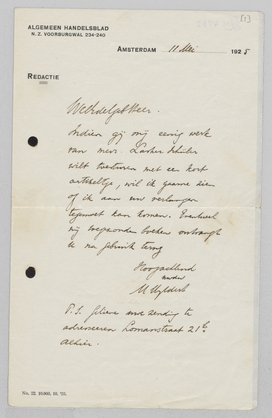 [1]
ALGEMEEN HANDELSBLAD
N. Z. VOORBURGWAL 234-240
AMSTERDAM 11 Mei 1925
REDACTIE
WelEdelgeb. Heer.
Indien gij mij eenig werk
van mevr. Lasker Schüler
wilt toesturen met een kort
artikeltje, wil ik gaarne zien
of ik aan uw verlangen
tegemoet kan komen. Eventueel
mij toegezonden boeken ontvangt
u na gebruik terug
Hoogachtend
P.S. Gelieve uw zending te
adresseeren Romanstraat 21
alhier.
No. 22. 10.000. 10. '23.